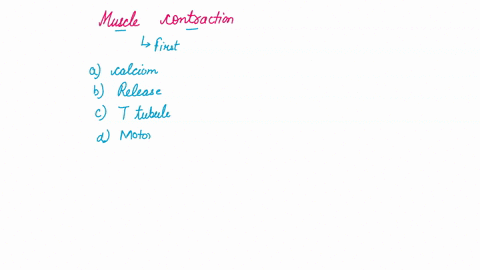 Muscle contraction
↳ first
a) calciom
b) Release
c) T tubule
d) Motor